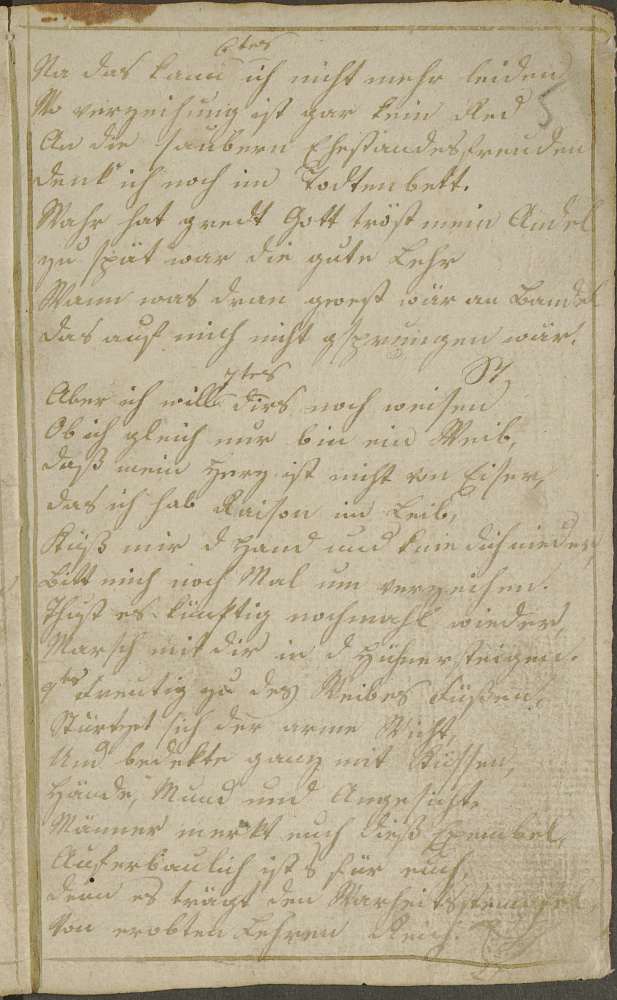 6tes
Na das kann ich nicht mehr leiden
Wo verzeihung ist gar kein Red
An die saubern Ehestandesfreuden
denk ich noch im Todtenbett.
Wahr hat gredt Gott tröst mein Andel
zu spät war die gute Lehr
Wann was dran gwest wär an Bandel
das auf mich nicht gsprungen wär.
7tes
Aber ich will dirs noch weisen
Ob ich gleich nur bin ein Weib,
daß mein Herz ist nicht von Eisen,
das ich hab Raison im Leib,
Küß mir d Hand und knie dich nieder,
Bitt mich noch Mal um verzeihen.
Thust es künftig nochmahl wieder,
Marsch mit dir in d Hühnersteigen.
8tes Freutig zu des Weibes Füßen,
Stürtzet sich der arme Wicht,
Und bedekte ganz mit Küssen,
Hände, Mund und Angesicht.
Männer merkt euch dieß Exembel,
Auferbaulich ists für euch,
denn es trägt den Warheitsstempel,
Von erobten Lehren Reich.